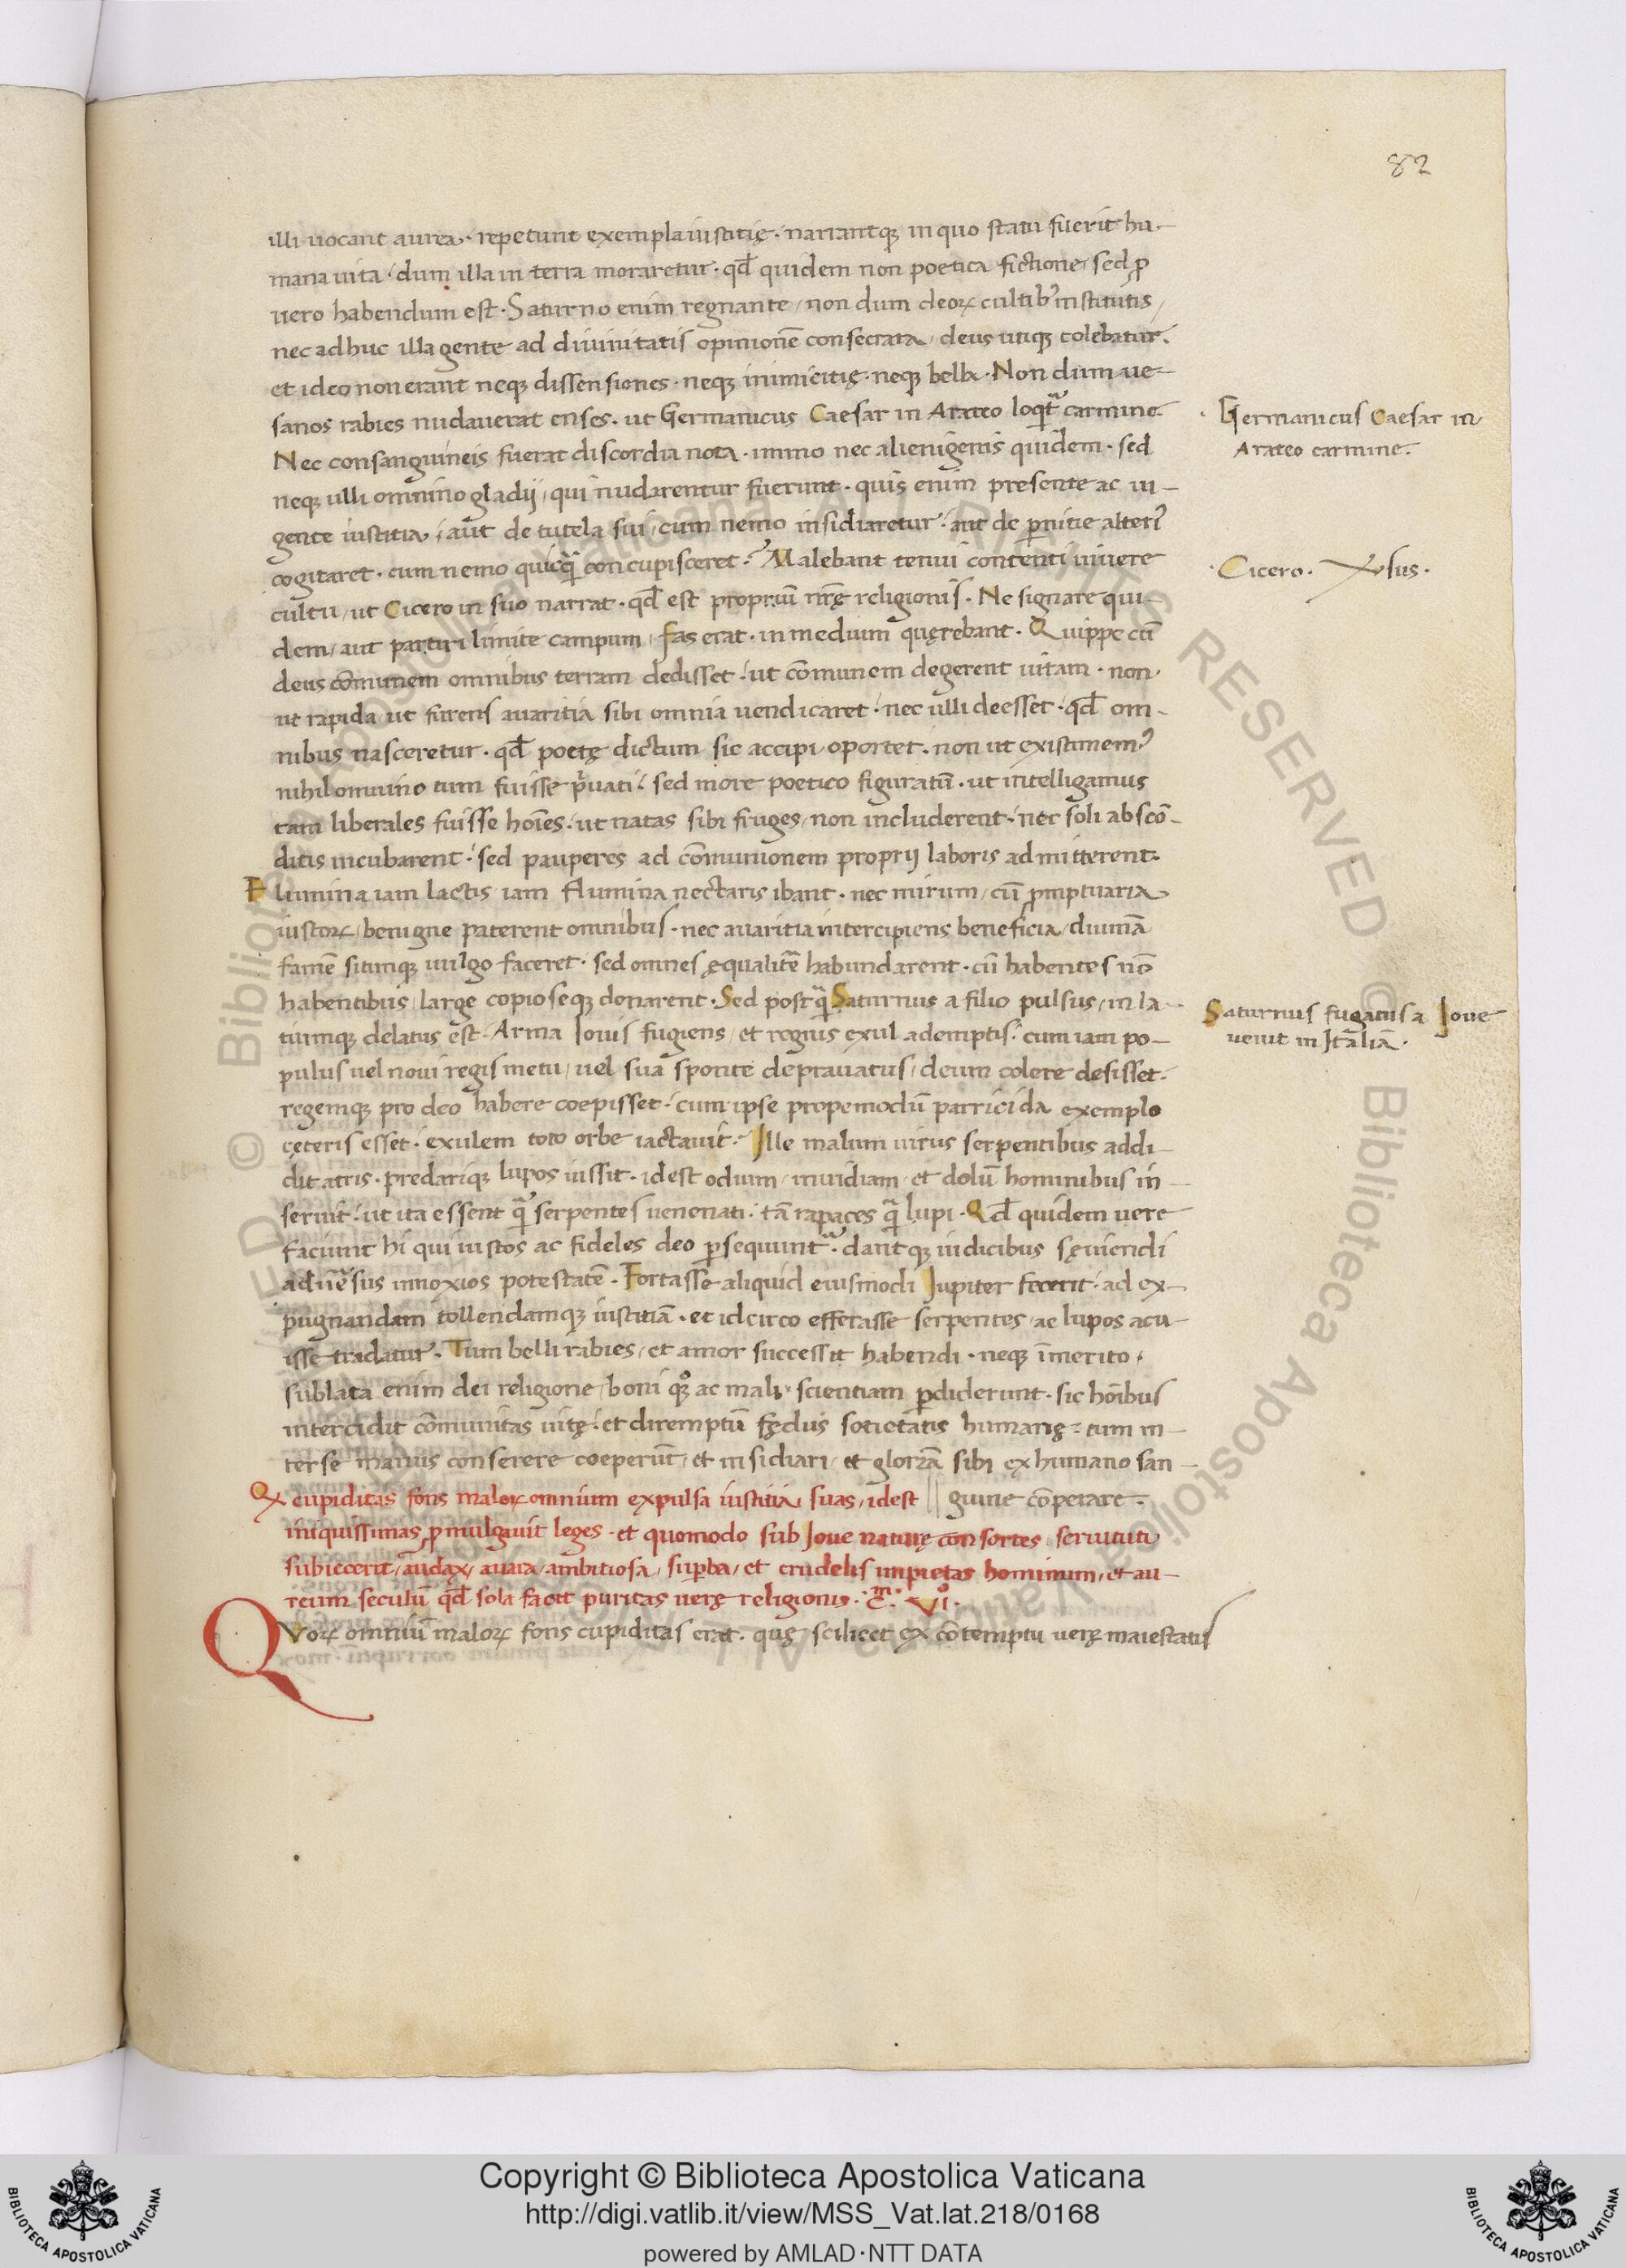 82
illi uocant aurea · repetunt exempla iustitię · narrantqȝ in quo statu fuerit hu-
mana uita · dum illa in terra moraretur · qđ quidem non poetica fictione / sed ꝓ
uero habendum est · Saturno enim regnante / non dum deoꝝ cultibꝰ institutis /
nec adhuc illa gente ad diuinitatis opinionē consecrata / deus utiqȝ colebatur.
et ideo non erant neqȝ dissensiones · neqȝ inimicitię · neqȝ bella · Non dum ue-
sanos rabies nudauerat enses · ut Germanicus Caesar in Arateo loqͥtᷓ carmine
Nec consanguineis fuerat discordia nota · immo nec alienigenis quidem · sed
neqȝ ulli omnino gladij / qui nudarentur fuerunt · quis enim presente ac ui-
gente iustitia / aut de tutela sui / cum nemo insidiaretur · aut de ꝑnitie alteriꝰ
cogitaret · cum nemo quicqᷓ concupisceret ? Malebant tenui contenti uiuere
cultu / ut Cicero in suo narrat · qđ est propriū nrę̄ religionis · Ne signare qui-
dem / aut partiri limite campum / fas erat · in medium quęrebant · Quippe cū
deus cōmunem omnibus terram dedisset · ut cōmunem degerent uitam · non
ut rapida / ut furens auaritia sibi omnia uendicaret · nec ulli deesset · qđ om-
nibus nasceretur · qđ poetę dictum sic accipi oportet · non ut existimemꝰ
nihil omnino tum fuisse pͥuati · sed more poetico figuratū · ut intelligamus
tam liberales fuisse hoīes · ut natas sibi fruges / non includerent · nec soli abscō-
ditis incubarent · sed pauperes ad cōmunionem proprij laboris admitterent.
Flumina iam lactis / iam flumina nectaris ibant · nec mirum / cū ꝓmptuaria
iustoꝝ / benigne paterent omnibus · nec auaritia intercipiens beneficia / diuinā
famē sitimqȝ uulgo faceret · sed omnes ęqualitē habundarent · cū habentes nō
habentibus / large copioseqȝ donarent · Sed postqᷓ Saturnus a filio pulsus / in la-
tiumqȝ delatus est · Arma Iouis fugiens / et regnis exul ademptis · cum iam po-
pulus uel noui regis metu / uel sua sponte deprauatus / deum colere desisset ·
regemqȝ pro deo habere coepisset · cum ipse propemodū parricida exemplo
cęteris esset · exulem toto orbe iactauit · Ille malum uirus serpentibus addi-
dit atris · predariqȝ lupos iussit · idest odium / inuidiam / et dolū hominibus in-
seruit · ut ita essent qᷓ serpentes uenenati · tā rapaces qᷓ lupi · Qđ quidem uere
faciunt hi qui iustos ac fideles deo ꝑsequuntᷓ · dantqȝ iudicibus sęuiendi
aduēsus innoxios potestatē · Fortasse aliquid eiusmodi Iupiter fecerit · ad ex-
pugnandam tollendamqȝ iustitiā · et idcirco efferasse serpentes / ac lupos acu-
isse tradatur · Tum belli rabies / et amor successit habendi · neqȝ īmerito ·
sublata enim dei religione / boni qͦȝ ac mali / scientiam ꝑdiderunt · sic hoībus
intercidit cōmunitas uitę · et diremptū fędus societatis humanę · tum in-
ter se manus conserere coeperūt / et insidiari / et gloriā sibi ex humano san-
guine cōperare.
Qꝫ cupiditas fons maloꝝ omnium expulsa iustitia / suas / idest
iniquissimas ꝓmulgauit leges · et quomodo sub Ioue naturę consortes / seruituti
subiecerit / audax / auara / ambitiosa / suꝑba / et crudelis impietas hominum / et au-
reum seculū qđ sola facit puritas uerę religionis · C̄ · VIͦ ·
Quoꝝ omniū maloꝝ fons cupiditas erat · quę scilicet ex cōtemptu uerę maiestatis
· Germanicus Caesar in
Arateo carmine.
· Cicero ·
Saturnus fugatus a Ioue
uenit in Italiā.
Copyright © Biblioteca Apostolica Vaticana
http://digi.vatlib.it/view/MSS_Vat.lat.218/0168
powered by AMLAD·NTT DATA
BIBLIOTECA APOSTOLICA VATICANA
BIBLIOTECA APOSTOLICA VATICANA